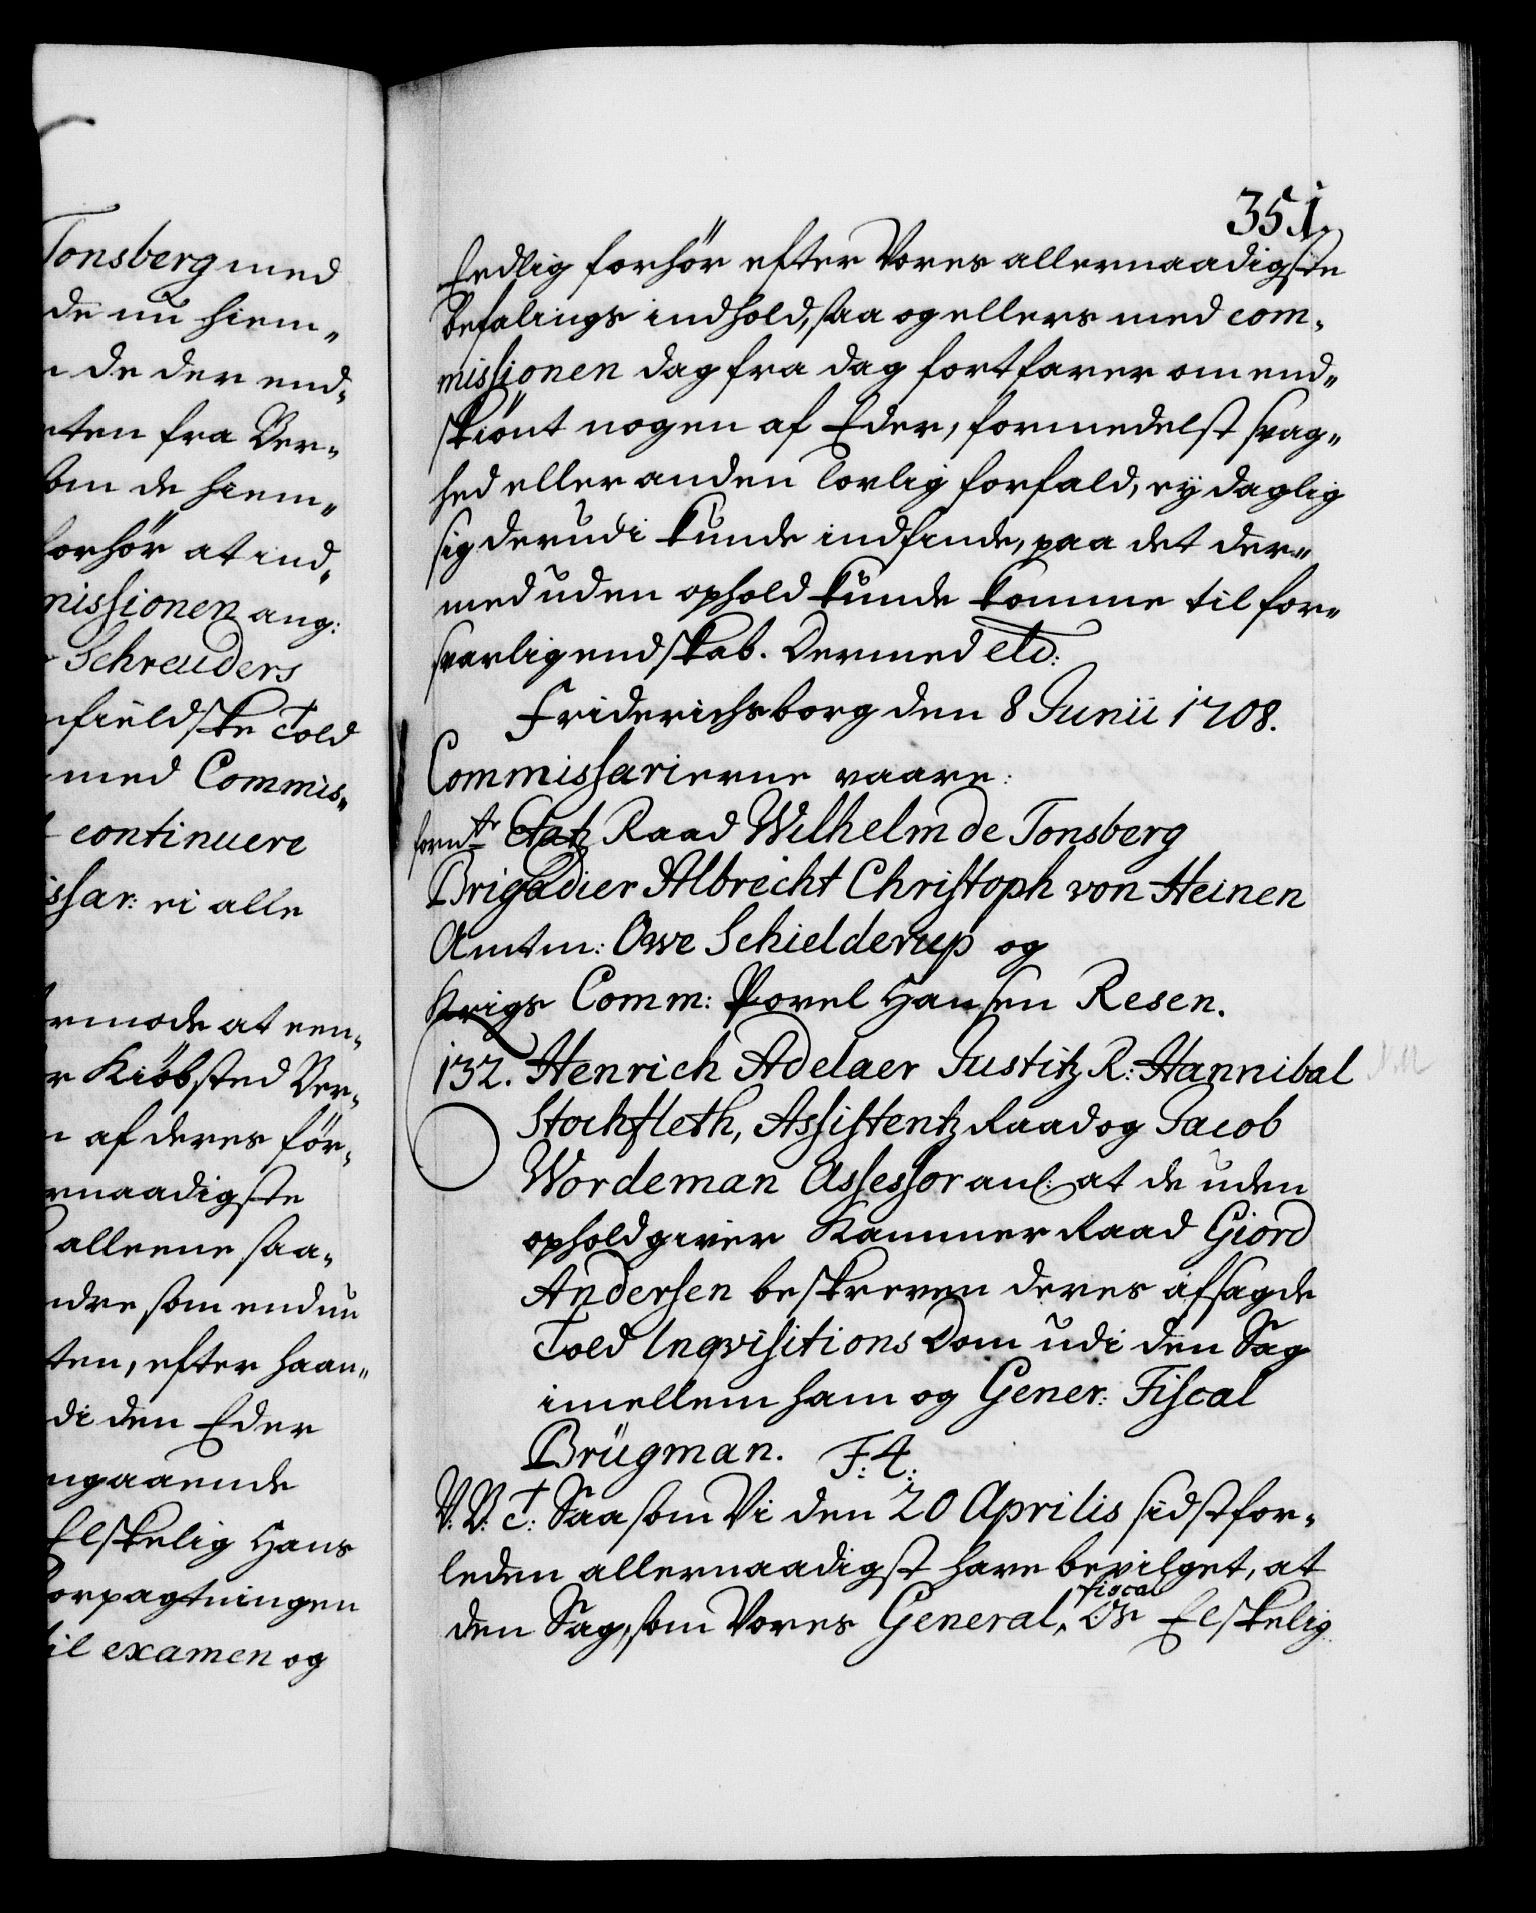 Tonsberg med
de nu hiem„
de der end„
ten fra Ber„
de hiem„
forhör at ind„
missionen ang:
Schreuders
fieldske Told
med Commis„
continuere
ssar: ei alle
rmode at een„
r Kiöbsted Ber„
af deres för„
rnaadigste
alleene saa„
ndre som endnu
ten, efter haan„
di den Eder
ngaaende
Elskelig Hans
orpagtningen
til examen og
351.
Eedlig forhör efter Vores allernaadigste
befalings indhold, saa og ellers med com„
missionen dag fra dag fortfarer om end„
skiönt nogen af Eder, formedelst svag„
hed eller anden lovlig forfald, ey daglig
sig derudi kunde indfinde, paa det der„
med uden ophold kunde komme til for„
svarlig endskab. Dermed etc:
Friderichsborg den 8 Junii 1708.
Commissarierne vaare:
Etatz Raad Wilhelm de Tonsberg
Brigadier Albrecht Christoph von Heinen
Amtm: Owe Schielderup og
Krigs Comm: Povel Hansen Resen.
132. Henrich Adelaer Justitz R: Hannibal
Stockfleth, Assistentz Raad og Jacob
Wordeman Assessor anl: at de uden
ophold giver Kammer Raad Giord
Andersen beskreven deres afsagde
Told Inqvisitions Dom udi den Sag
imellem ham og Gener: Fiscal
Brügman. F: 4:
V. V. T: Saasom Vi den 20 Aprilis sidstfor„
leden allernaadigst have bevilget, at
den Sag, som Vores General, fiscal Os Elskelig